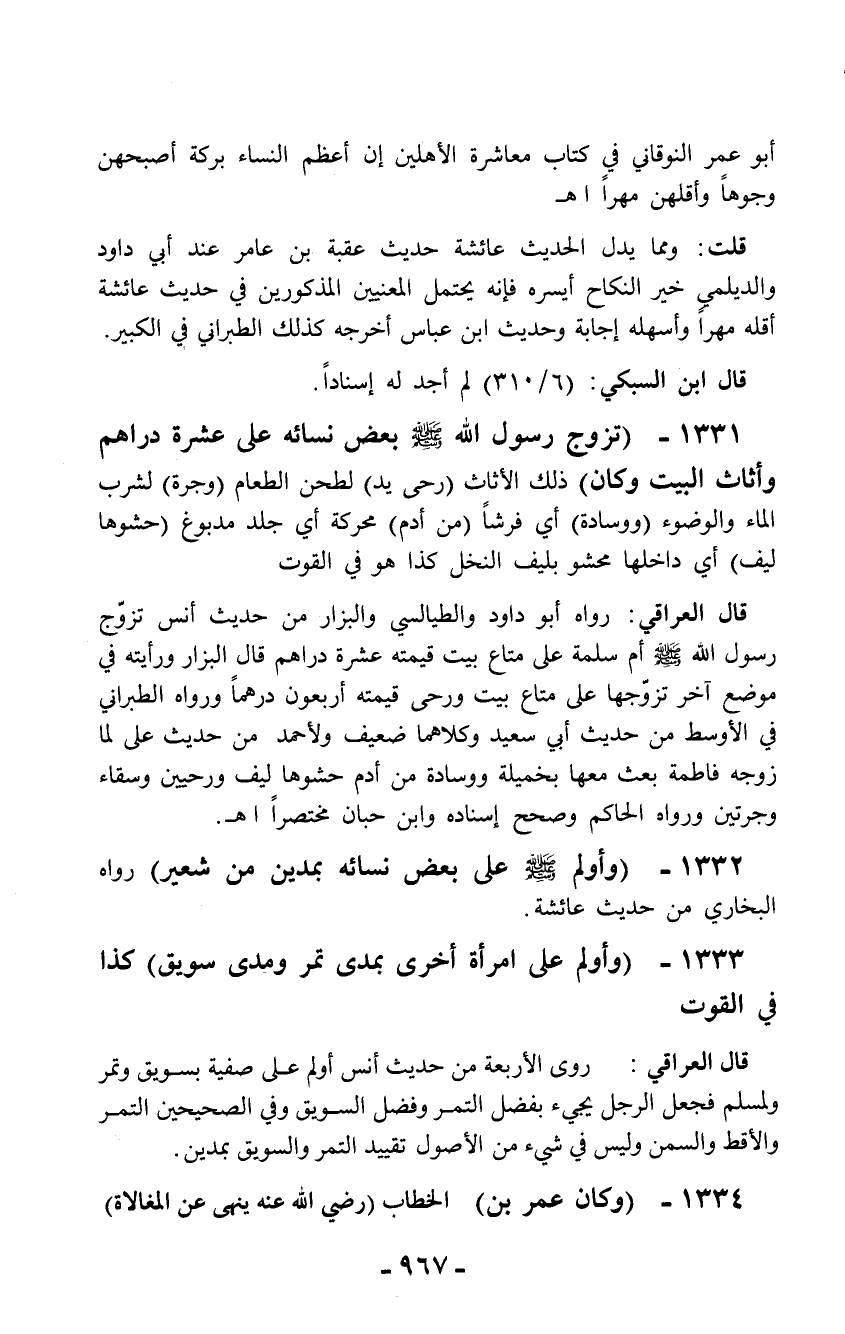 أبو عمر النوقاني في كتاب معاشرة الأهلين إن أعظم النساء بركة أصبحهن
وجوهاً وأقلهن مهراً ا هـ
قلت: ومما يدل الحديث عائشة حديث عقبة بن عامر عند أبي داود
والديلمي خير النكاح أيسره فإنه يحتمل المعنيين المذكورين في حديث عائشة
أقله مهراً وأسهله إجابة وحديث ابن عباس أخرجه كذلك الطبراني في الكبير.
قال ابن السبكي: (٣١٠/٦) لم أجد له إسناداً.
١٣٣١ - (تزوج رسول الله ﷺ بعض نسائه على عشرة دراهم
وأثاث البيت وكان) ذلك الأثاث (رحى يد) لطحن الطعام (وجرة) لشرب
الماء والوضوء (ووسادة) أي فرشاً (من أدم) محركة أي جلد مدبوغ (حشوها
ليف) أي داخلها محشو بليف النخل كذا هو في القوت
قال العراقي: رواه أبو داود والطيالسي والبزار من حديث أنس تزوّج
رسول الله ﷺ أم سلمة على متاع بيت قيمته عشرة دراهم قال البزار ورأيته في
موضع آخر تزوّجها على متاع بيت ورحى قيمته أربعون درهماً ورواه الطبراني
في الأوسط من حديث أبي سعيد وكلاهما ضعيف ولأحمد من حديث على لما
زوجه فاطمة بعث معها بخميلة ووسادة من أدم حشوها ليف ورحيين وسقاء
وجرتين ورواه الحاكم وصحح إسناده وابن حبان مختصراً ا هـ.
١٣٣٢ - (وأولم ﷺ على بعض نسائه بمدين من شعير) رواه
البخاري من حديث عائشة.
١٣٣٣ - (وأولم على امرأة أخرى بمدى تمر ومدى سويق) كذا
في القوت
قال العراقي : روى الأربعة من حديث أنس أولم على صفية بسويق وتمر
ولمسلم فجعل الرجل يجيء بفضل التمر وفضل السويق وفي الصحيحين التمر
والأقط والسمن وليس في شيء من الأصول تقييد التمر والسويق بمدين.
١٣٣٤ - (وكان عمر بن) الخطاب (رضي الله عنه ينهى عن المغالاة)
- ٩٦٧ -